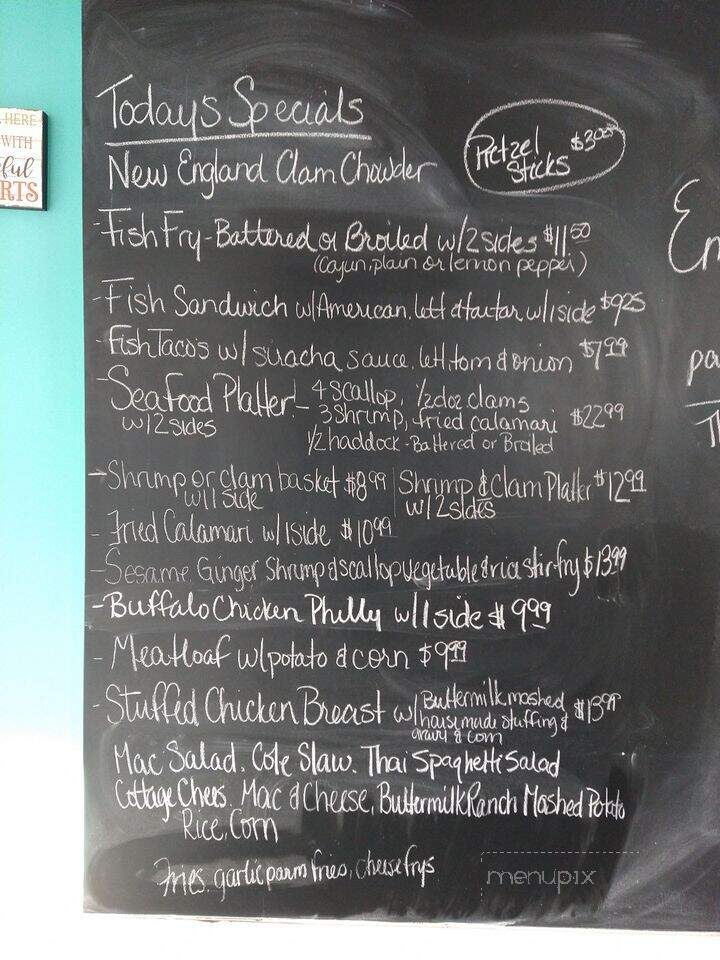 HERE
WITH
ful
RTS
Todays Specials
Pretzel Sticks $3.00
New England Clam Chowder
- Fish Fry - Battered or Broiled w/2 sides $11.50
(Cajun, plain or lemon pepper)
- Fish Sandwich w/American, lett & tartar w/1 side $9.25
- Fish Tacos w/ siracha sauce, lett, tom & onion $7.99
- Seafood Platter - 4 Scallop, 1/2 doz clams
w/2 sides 3 Shrimp, fried calamari $22.99
1/2 haddock - Battered or Broiled
- Shrimp or clam basket $8.99 | Shrimp & Clam Platter $12.99
w/1 side w/2 sides
- Fried Calamari w/1 side $10.99
- Sesame Ginger Shrimp & scallop vegetable & rice stir-fry $13.99
- Buffalo Chicken Philly w/1 side $9.99
- Meatloaf w/potato & corn $9.99
- Stuffed Chicken Breast w/ Buttermilk mashed $13.99
housemade stuffing &
gravy & corn
Mac Salad, Cole Slaw, Thai Spaghetti Salad
Cottage Chees, Mac & Cheese, Buttermilk Ranch Mashed Potato
Rice, Corn
Fries, garlic parm fries, cheese frys
En
pa
menupix